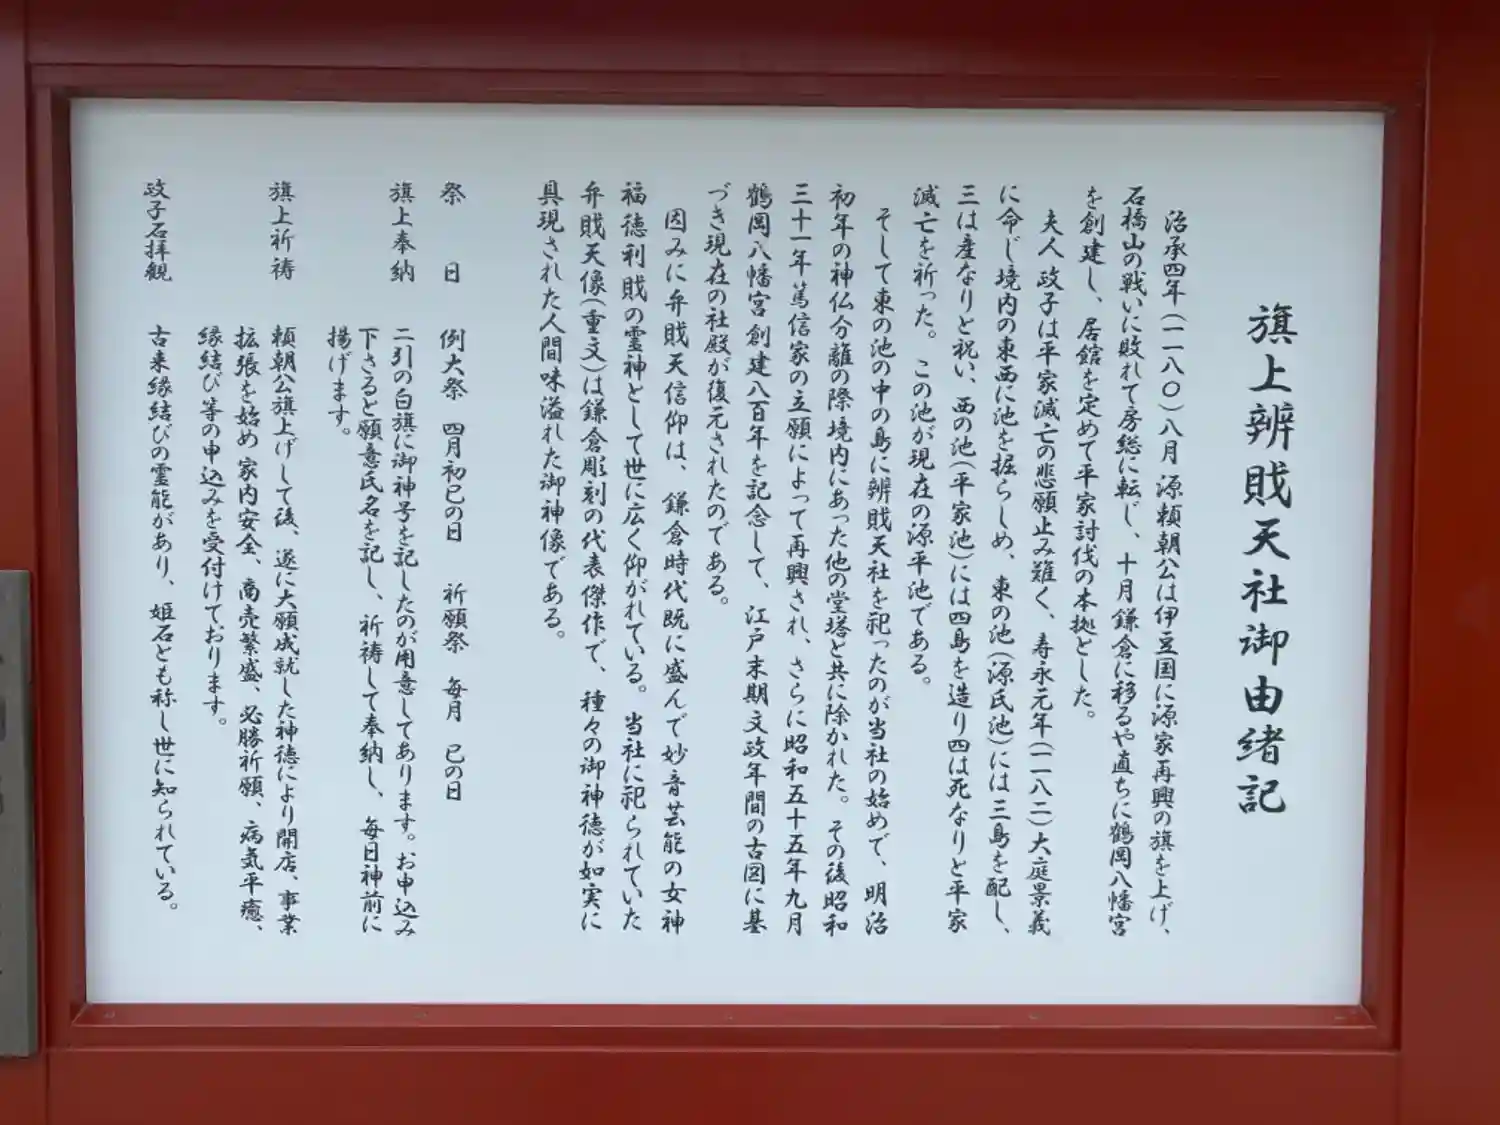 旗上辨戝天社御由緒記
治承四年(一一八〇)八月 源頼朝公は伊豆国に源家再興の旗を上げ、
石橋山の戦いに敗れて房総に転じ、十月鎌倉に移るや直ちに鶴岡八幡宮
を創建し、居館を定めて平家討伐の本拠とした。
夫人 政子は平家滅亡の悲願止み難く、寿永元年(一一八二)大庭景義
に命じ境内の東西に池を掘らしめ、東の池(源氏池)には三島を配し、
三は産なりと祝い、西の池(平家池)には四島を造り四は死なりと平家
滅亡を祈った。この池が現在の源平池である。
そして東の池の中の島に辨戝天社を祀ったのが当社の始めで、明治
初年の神仏分離の際境内にあった他の堂塔と共に除かれた。その後昭和
三十一年篤信家の立願によって再興され、さらに昭和五十五年九月
鶴岡八幡宮創建八百年を記念して、江戸末期文政年間の古図に基
づき現在の社殿が復元されたのである。
因みに弁戝天信仰は、鎌倉時代既に盛んで妙音芸能の女神
福徳利戝の霊神として世に広く仰がれている。当社に祀られていた
弁戝天像(重文)は鎌倉彫刻の代表傑作で、種々の御神徳が如実に
具現された人間味溢れた御神像である。
祭 日 例大祭 四月初巳の日 祈願祭 毎月 巳の日
旗上奉納 二引の白旗に御神号を記したのが用意してあります。お申込み
下さると願意氏名を記し、祈祷して奉納し、毎日神前に
揚げます。
旗上祈祷 頼朝公旗上げして後、遂に大願成就した神徳により開店、事業
拡張を始め 家内安全、商売繁盛、必勝祈願、病気平癒、
縁結び等の申込みを受付けております。
政子石拝観 古来縁結びの霊能があり、姫石とも称し世に知られている。